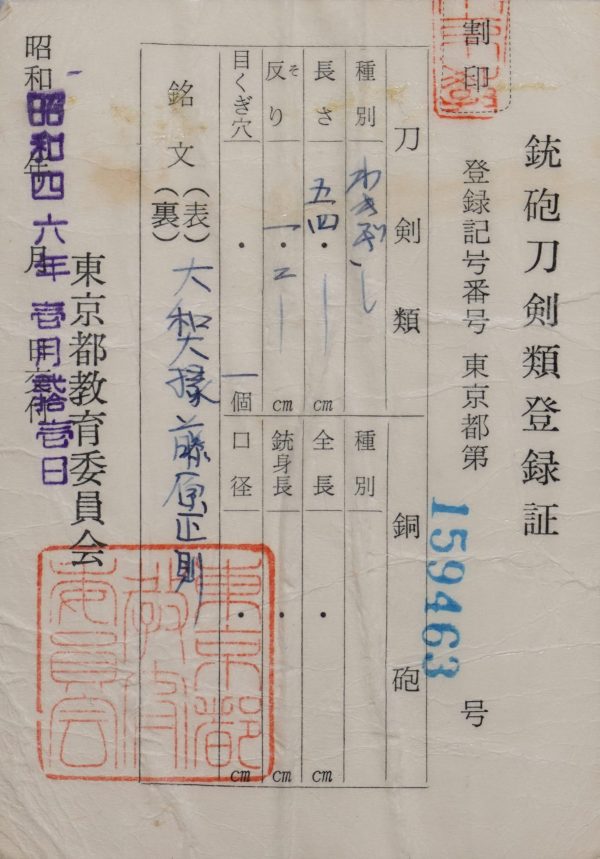 銃砲刀剣類登録証
割印
登録記号番号 東京都第 159463 号
刀剣類
銅砲
種別 わきざし
種別
長さ 五四・ cm
全長 ・ cm
反り そ 一・二 cm
銃身長 ・ cm
目くぎ穴 ・ 一個
口径 ・ cm
銘文 (表) 大和大掾藤原正則
(裏)
昭和 年 月 日交付
昭和四六年壱月弐拾壱日
東京都教育委員会
東京都
教育
委員会